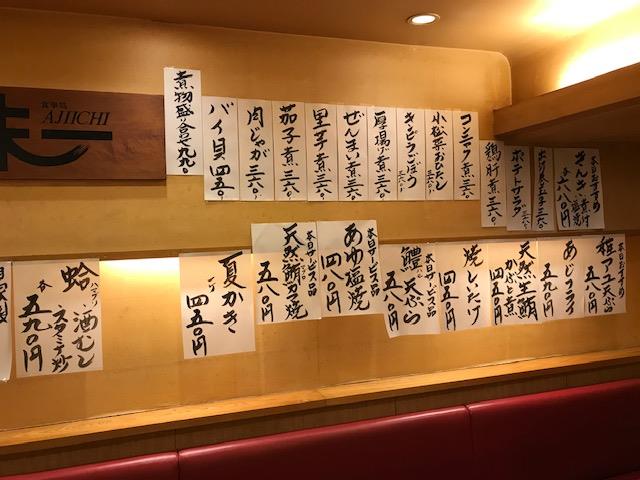 味一
食事処
AJIICHI
煮物盛合せ七九〇
バイ貝 四五〇
肉じゃが 三六〇
茄子煮 三六〇
里芋煮 三六〇
ぜんまい煮 三六〇
厚揚げ煮 三六〇
キンピラごぼう 三六〇
小松菜おひたし 三六〇
コンニャク煮 三六〇
鶏肝煮 三六〇
ポテトサラダ 三六〇
本日おすすめ
きんき 煮付 塩焼
各六八〇円
蛤 酒むし
ハマグリ
スタミナ炒
各五九〇円
夏かき
四五〇円
本日サービス品
天然鯛カマ焼
五八〇円
本日サービス品
あゆ塩焼
四八〇円
本日サービス品
鱧天ぷら
ハモ
五八〇円
焼しいたけ
四五〇円
天然生鯛
かぶと煮
四五〇円
あじフライ
五八〇円
本日おすすめ
稚アユ天ぷら
五八〇円